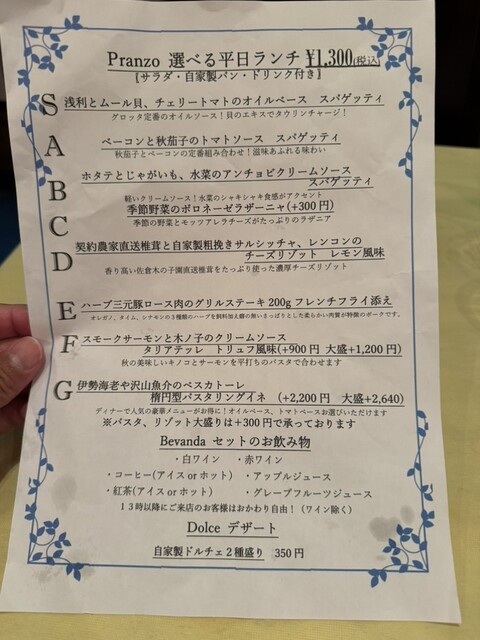 Pranzo 選べる平日ランチ ¥1,300(税込)
[サラダ・自家製パン・ドリンク付き]
S 浅利とムール貝、チェリートマトのオイルベース スパゲッティ
グロッタ定番のオイルソース！貝のエキスでタウリンチャージ！
A ベーコンと秋茄子のトマトソース スパゲッティ
秋茄子とベーコンの定番組み合わせ！滋味あふれる味わい
B ホタテとじゃがいも、水菜のアンチョビクリームソース
スパゲッティ
軽いクリームソース！水菜のシャキシャキ食感がアクセント
C 季節野菜のボロネーゼラザーニャ(+300円)
季節の野菜とモッツアレラチーズがたっぷりのラザニア
D 契約農家直送椎茸と自家製粗挽きサルシッチャ、レンコンの
チーズリゾット レモン風味
香り高い佐倉木の子園直送椎茸をたっぷり使った濃厚チーズリゾット
E ハーブ三元豚ロース肉のグリルステーキ 200g フレンチフライ添え
オレガノ、タイム、シナモンの3種類のハーブを飼料加え癖の無いさっぱりとした柔らかい肉質が特徴のポークです。
F スモークサーモンと木ノ子のクリームソース
タリアテッレ トリュフ風味(+900円 大盛+1,200円)
秋の美味しいキノコとサーモンを平打ちのパスタで合わせます
G 伊勢海老や沢山魚介のペスカトーレ
楕円型パスタリングイネ (+2,200円 大盛+2,640)
ディナーで人気の豪華メニューがお得に！オイルベース、トマトベースお選びいただけます
※パスタ、リゾット大盛りは+300円で承っております
Bevanda セットのお飲み物
・白ワイン ・赤ワイン
・コーヒー(アイス or ホット) ・アップルジュース
・紅茶(アイス or ホット) ・グレープフルーツジュース
13時以降にご来店のお客様はおかわり自由！(ワイン除く)
Dolce デザート
自家製ドルチェ2種盛り 350円